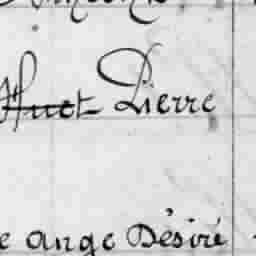 Huet Pierre
e ange Désiré